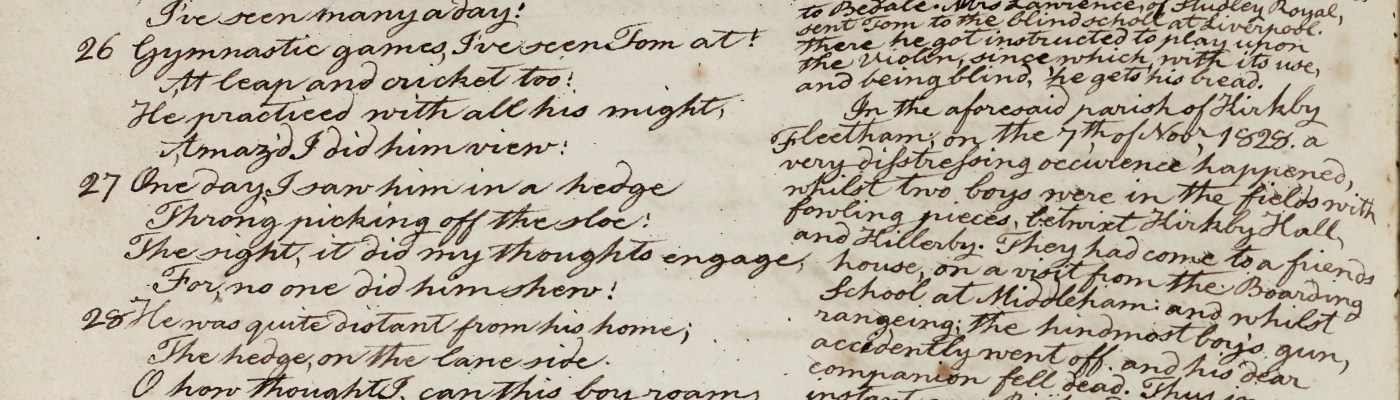 I've seen many a day!
26 Gymnastic games, I've seen Tom at!
At leap and cricket too!
He practiced with all his might,
Amaz'd I did him view!
27 One day, I saw him in a hedge
Throng picking off the sloe!
The sight, it did my thoughts engage,
For, no one did him shew!
28 He was quite distant from his home;
The hedge, on the lane side.
O how thought I, can this boy roam,
to Bedale. Mrs Lawrence, of Studley Royal,
sent Tom to the blind scholl at Liverpool.
there he got instructed to play upon
the Violin, since which, with its use,
and being blind, he gets his bread.
In the aforesaid parish of Kirkby
Fleetham, on the 7th of Novr, 1828. a
very disstressing occurence happened,
whilst two boys were in the fields with
fowling pieces, betwixt Kirkby Hall,
and Killerby. They had come to a friends
house, on a visit from the Boarding
School at Middleham: and whilst
rangeing; the hindmost boys gun,
accidently went off, and his dear
companion fell dead. Thus in
instant